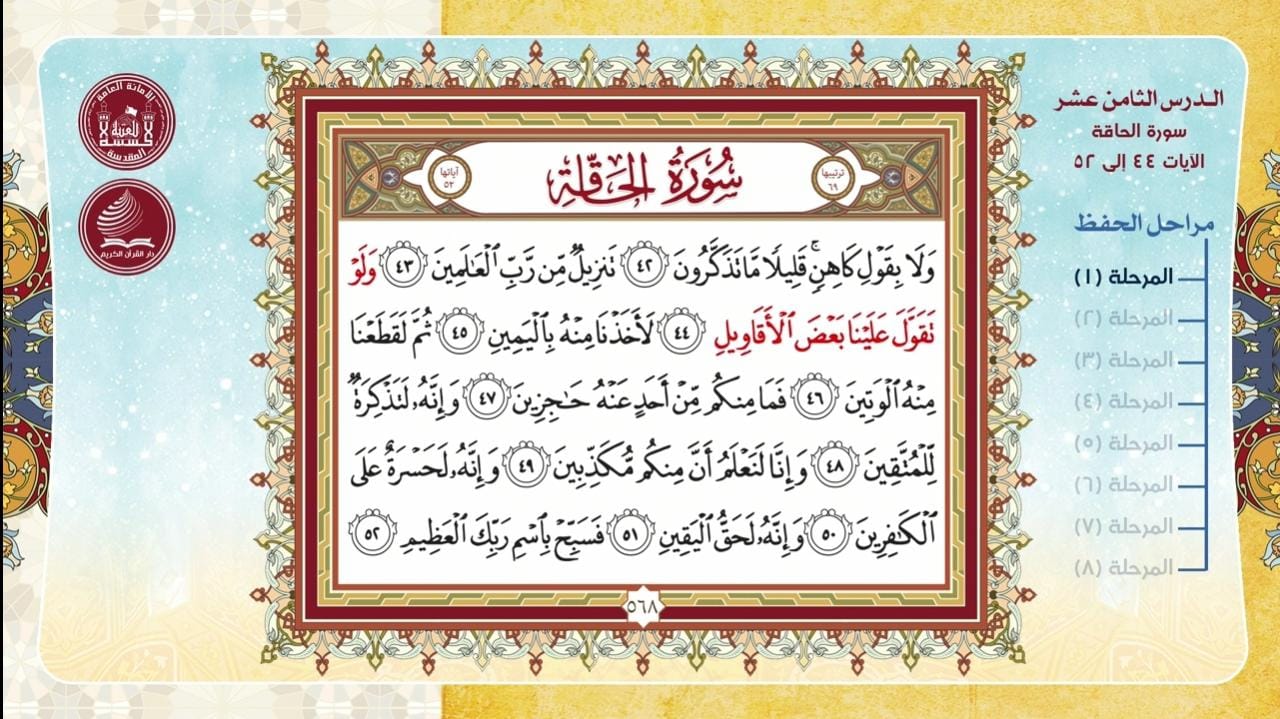 الدرس الثامن عشر
سورة الحاقة
الآيات ٤٤ إلى ٥٢
مراحل الحفظ
المرحلة (١)
المرحلة (٢)
المرحلة (٣)
المرحلة (٤)
المرحلة (٥)
المرحلة (٦)
المرحلة (٧)
المرحلة (٨)
ترتيبها
٦٩
سُورَةُ الحَاقَّةِ
آياتها
٥٢
وَلَا بِقَوْلِ كَاهِنٖۚ قَلِيلٗا مَّا تَذَكَّرُونَ ٤٢ تَنزِيلٞ مِّن رَّبِّ ٱلۡعَٰلَمِينَ ٤٣ وَلَوۡ
تَقَوَّلَ عَلَيۡنَا بَعۡضَ ٱلۡأَقَاوِيلِ ٤٤ لَأَخَذۡنَا مِنۡهُ بِٱلۡيَمِينِ ٤٥ ثُمَّ لَقَطَعۡنَا
مِنۡهُ ٱلۡوَتِينَ ٤٦ فَمَا مِنكُم مِّنۡ أَحَدٍ عَنۡهُ حَٰجِزِينَ ٤٧ وَإِنَّهُۥ لَتَذۡكِرَةٞ
لِّلۡمُتَّقِينَ ٤٨ وَإِنَّا لَنَعۡلَمُ أَنَّ مِنكُم مُّكَذِّبِينَ ٤٩ وَإِنَّهُۥ لَحَسۡرَةٌ عَلَى
ٱلۡكَٰفِرِينَ ٥٠ وَإِنَّهُۥ لَحَقُّ ٱلۡيَقِينِ ٥١ فَسَبِّحۡ بِٱسۡمِ رَبِّكَ ٱلۡعَظِيمِ ٥٢
٥٦٨
الأمانة العامة
للعتبة
الحسينية
المقدسة
دار القرآن الكريم